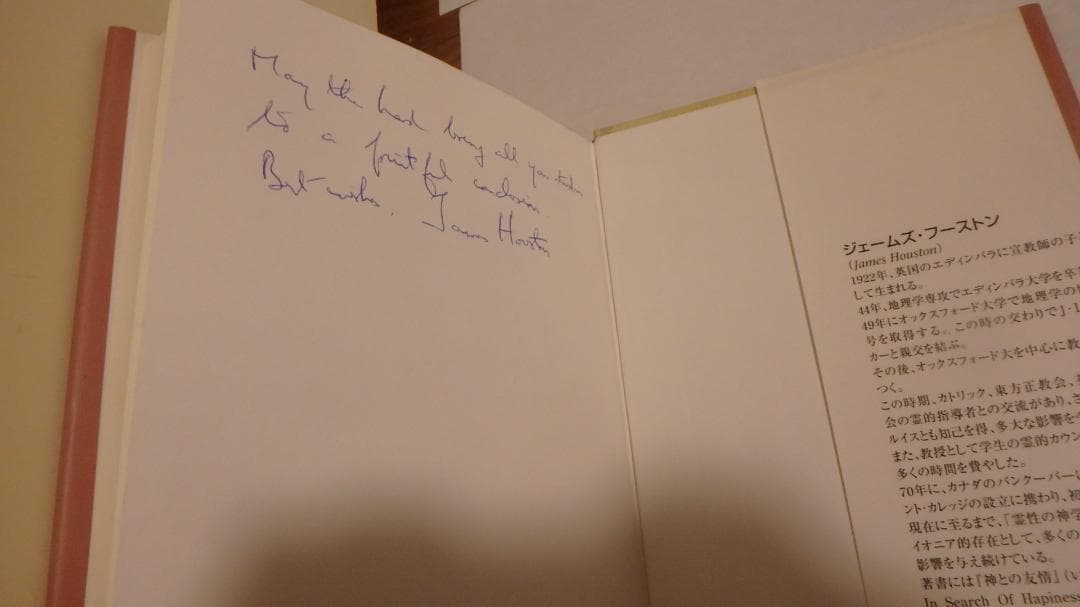 May the Lord bring all your studies
to a fruitful conclusion.
Best wishes, James Houston
ジェームズ・フーストン
(James Houston)
1922年、英国のエディンバラに宣教師の子
して生まれる。
44年、地理学専攻でエディンバラ大学を卒
49年にオックスフォード大学で地理学の
号を取得する。この時の交わりでJ・I
カーと親交を結ぶ。
その後、オックスフォード大を中心に教
つく。
この時期、カトリック、東方正教会、
会の霊的指導者との交流があり、さ
ルイスとも知己を得、多大な影響を
また、教授として学生の霊的カウン
多くの時間を費やした。
70年に、カナダのバンクーバーに
ント・カレッジの設立に携わり、初
現在に至るまで、「霊性の神学
イオニア的存在として、多くの
影響を与え続けている。
著書には『神との友情』(い
In Search Of Hapiness